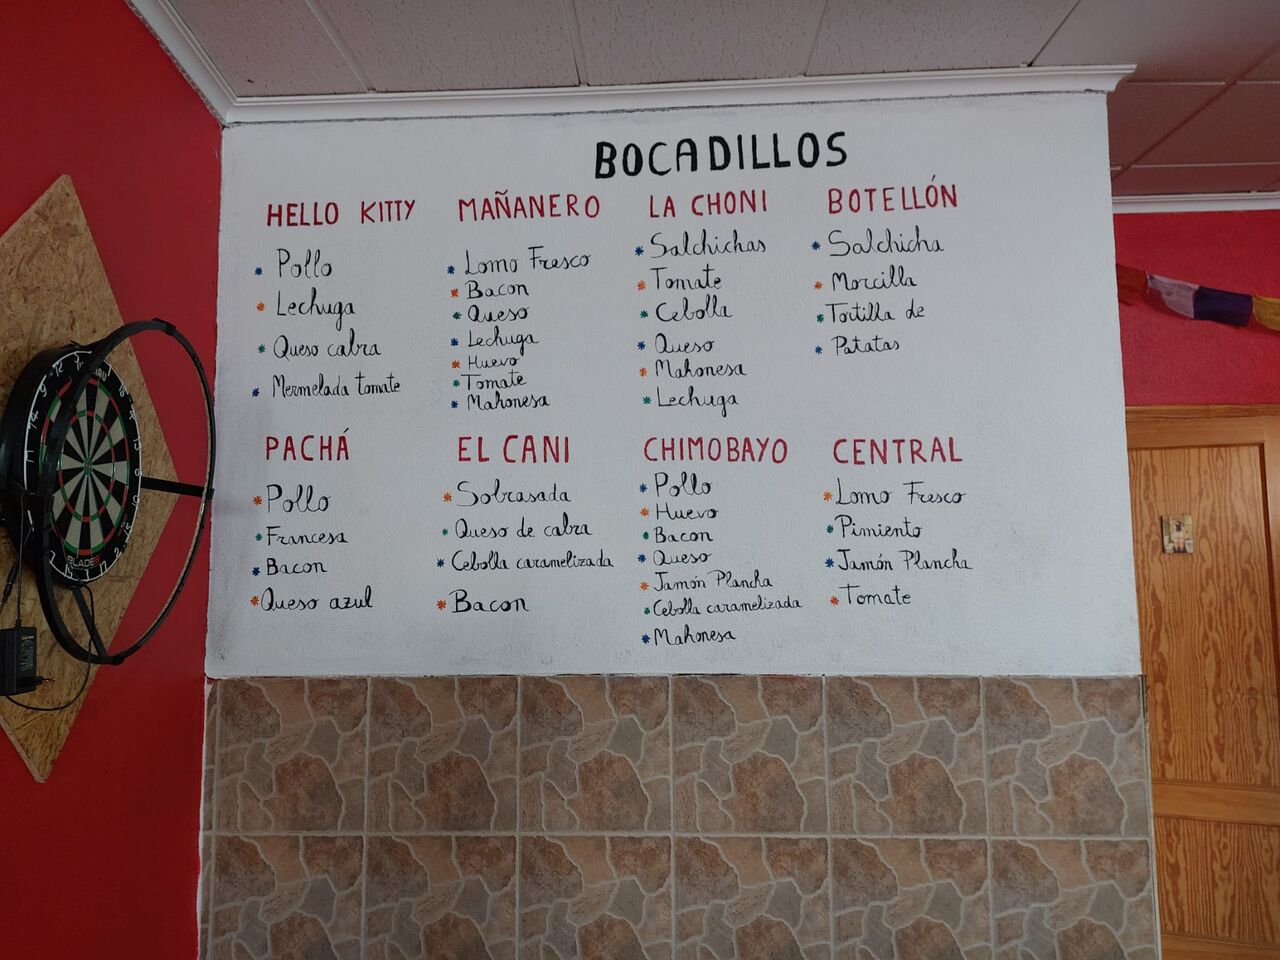 BOCADILLOS
HELLO KITTY
* Pollo
* Lechuga
* Queso cabra
* Mermelada tomate
MAÑANERO
* Lomo Fresco
* Bacon
* Queso
* Lechuga
* Huevo
* Tomate
* Mahonesa
LA CHONI
* Salchichas
* Tomate
* Cebolla
* Queso
* Mahonesa
* Lechuga
BOTELLÓN
* Salchicha
* Morcilla
* Tortilla de
* Patatas
PACHÁ
* Pollo
* Francesa
* Bacon
* Queso azul
EL CANI
* Sobrasada
* Queso de cabra
* Cebolla caramelizada
* Bacon
CHIMOBAYO
* Pollo
* Huevo
* Bacon
* Queso
* Jamón Plancha
* Cebolla caramelizada
* Mahonesa
CENTRAL
* Lomo Fresco
* Pimiento
* Jamón Plancha
* Tomate